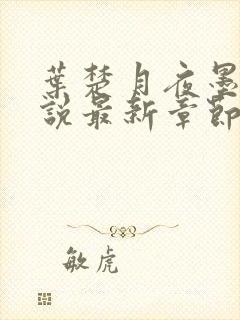 葉楚月夜墨
說最新章節
敏虎